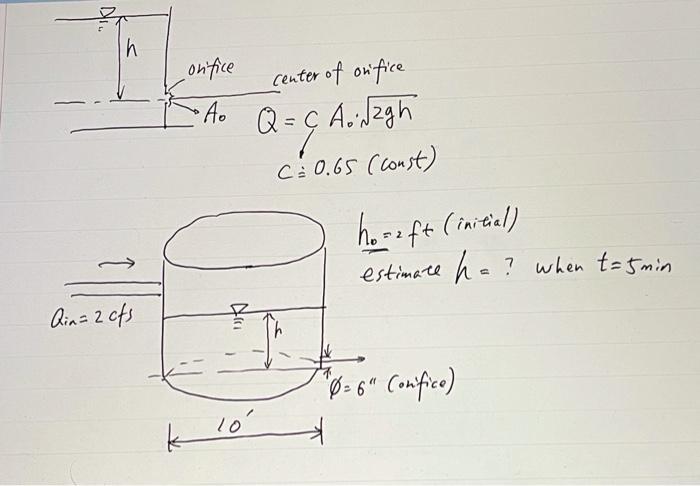 h
orifice
center of orifice
A₀
Q = C A₀·√2gh
C ≐ 0.65 (const)
h₀ = 2 ft (initial)
estimate h = ? when t = 5 min
Qin = 2 cfs
h
Ø = 6" (orifice)
10'